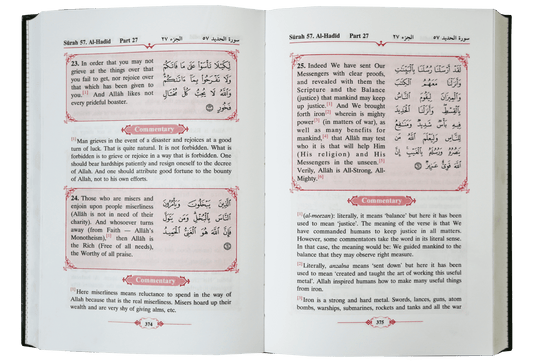 Sûrah 57. Al-Hadîd Part 27 الجزء ٢٧ سورة الحديد ٥٧
23. In order that you may not
grieve at the things over that
you fail to get, nor rejoice over
that which has been given to
you.[1] And Allâh likes not
every prideful boaster.
لِّكَيْلَا تَأْسَوْا عَلَىٰ مَا فَاتَكُمْ
وَلَا تَفْرَحُوا بِمَا ءَاتَىٰكُمْ
وَاللَّهُ لَا يُحِبُّ كُلَّ مُخْتَالٍ
فَخُورٍ ٢٣
Commentary
[1] Man grieves in the event of a disaster and rejoices at a good
turn of luck. That is quite natural. It is not forbidden. What is
forbidden is to grieve or rejoice in a way that is forbidden. One
should bear hardships patiently and resign oneself to the decree
of Allah. And one should attribute good fortune to the bounty
of Allah, not to his own efforts.
24. Those who are misers and
enjoin upon people miserliness
(Allâh is not in need of their
charity). And whosoever turns
away (from Faith — Allâh's
Monotheism),[1] then Allâh is
the Rich (Free of all needs),
the Worthy of all praise.
الَّذِينَ يَبْخَلُونَ وَيَأْمُرُونَ
النَّاسَ بِالْبُخْلِ وَمَن يَتَوَلَّ
فَإِنَّ اللَّهَ هُوَ الْغَنِيُّ الْحَمِيدُ
٢٤
Commentary
[1] Here miserliness means reluctance to spend in the way of
Allah because that is the real miserliness. Misers hoard up their
wealth and are very shy of giving alms, etc.
374
Sûrah 57. Al-Hadîd Part 27 الجزء ٢٧ سورة الحديد ٥٧
25. Indeed We have sent Our
Messengers with clear proofs,
and revealed with them the
Scripture and the Balance
(justice) that mankind may keep
up justice.[1] And We brought
forth iron[2] wherein is mighty
power[3] (in matters of war), as
well as many benefits for
mankind,[4] that Allâh may test
who it is that will help Him
(His religion) and His
Messengers in the unseen.[5]
Verily, Allâh is All-Strong, All-
Mighty.[6]
لَقَدْ أَرْسَلْنَا رُسُلَنَا بِالْبَيِّنَٰتِ
وَأَنزَلْنَا مَعَهُمُ الْكِتَٰبَ
وَالْمِيزَانَ لِيَقُومَ النَّاسُ
بِالْقِسْطِ وَأَنزَلْنَا الْحَدِيدَ
فِيهِ بَأْسٌ شَدِيدٌ وَمَنَٰفِعُ
لِلنَّاسِ وَلِيَعْلَمَ اللَّهُ مَن
يَنصُرُهُ وَرُسُلَهُ بِالْغَيْبِ إِنَّ
اللَّهَ قَوِيٌّ عَزِيزٌ ٢٥
Commentary
[1] (al-meezan): literally, it means 'balance' but here it has been
used to mean 'justice'. The meaning of the verse is that We
have commanded humans to keep justice in all matters.
However, some commentators take the word in its literal sense.
In that case, the meaning would be: We guided mankind to the
balance that they may observe right measure.
[2] Literally, anzalna means 'sent down' but here it has been
used to mean 'created and taught the art of working this useful
metal'. Allah inspired humans how to make many useful things
from iron.
[3] Iron is a strong and hard metal. Swords, lances, guns, atom
bombs, warships, submarines, rockets and tanks and all the war
375